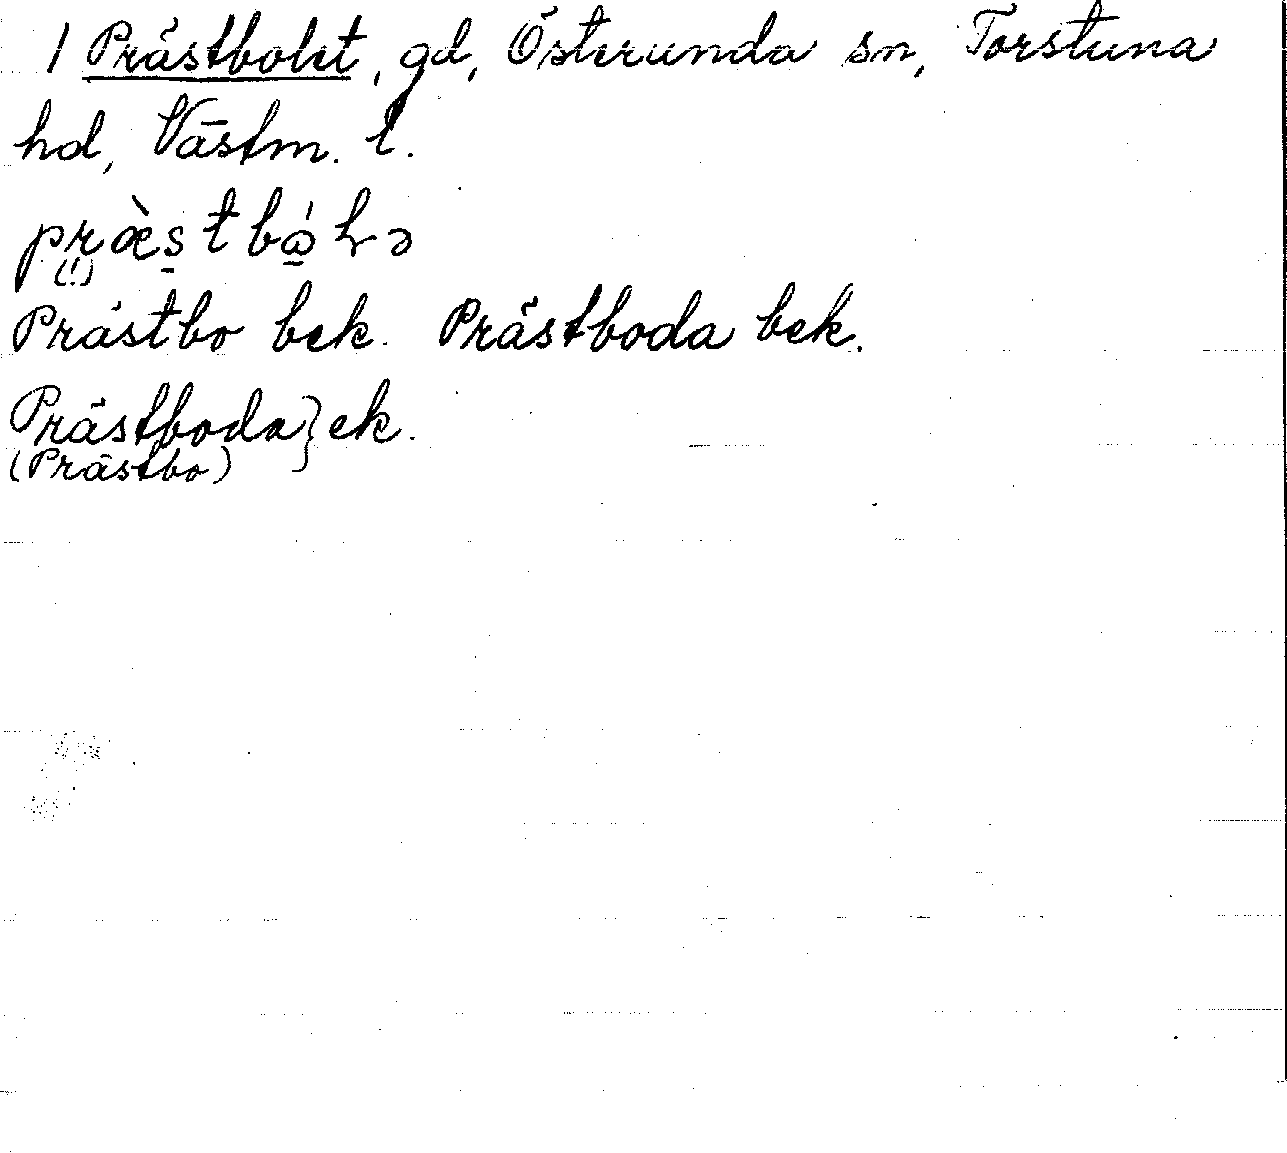 1 Prästbolet, gd, Österunda sn, Torstuna
hd, Västm. l.
præ̀s̠tbώ̠ɫə
(!)
Prästbo bek. Prästboda bek.
Prästboda } ek.
(Prästbo)